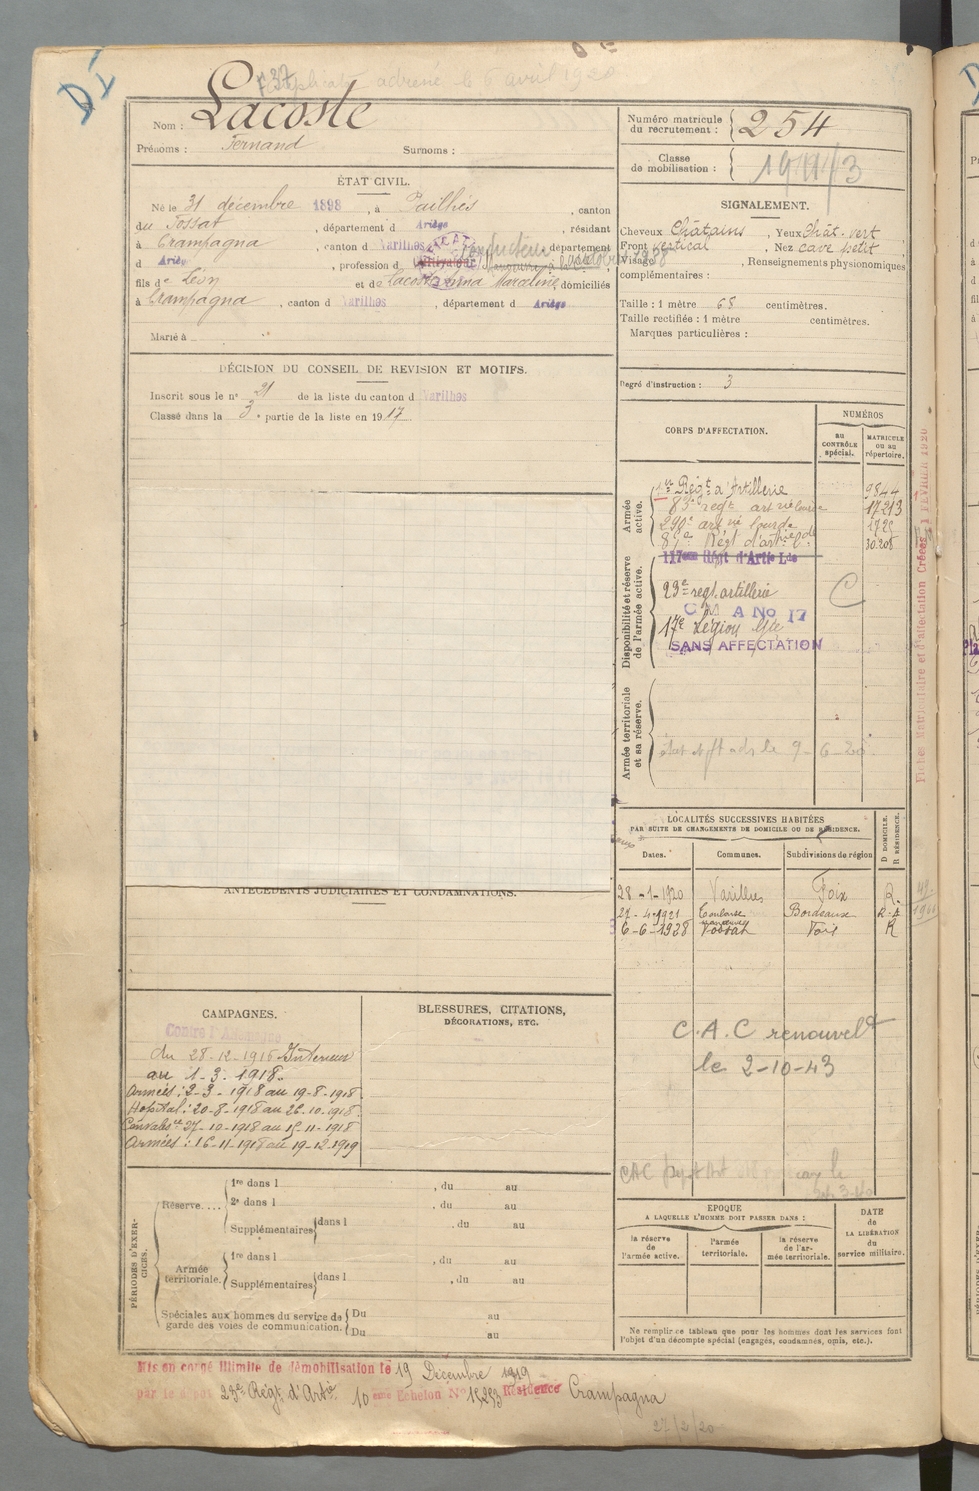 adressé le 6 avril 1920
Nom : Lacoste
Prénoms : Fernand Surnoms :
Numéro matricule du recrutement : 254
Classe de mobilisation :
ÉTAT CIVIL.
Né le 31 décembre 1898, à Pailhès, canton
du Fossat, département d Ariège, résidant
à Crampagna, canton d Varilhes, département
d Ariège, profession d cultivateur
fils de Léon et de Lacoste Marceline, domiciliés
à Crampagna, canton d Varilhes, département d Ariège
Marié à
SIGNALEMENT.
Cheveux Châtains, Yeux Chât. vert
Front vertical, Nez cave petit
Visage, Renseignements physionomiques
complémentaires :
Taille : 1 mètre 68 centimètres.
Taille rectifiée : 1 mètre centimètres.
Marques particulières :
Degré d'instruction : 3
DÉCISION DU CONSEIL DE REVISION ET MOTIFS.
Inscrit sous le n° 21 de la liste du canton d Varilhes
Classé dans la 3e partie de la liste en 1917
CORPS D'AFFECTATION.
NUMÉROS
au CONTRÔLE spécial.
MATRICULE ou au répertoire.
Armée active.
1er Régt d'Artillerie 9844
83e regt artie lourde 17213
290e artie lourde
Disponibilité et réserve de l'armée active.
117eme Régt d'Artie Lde
23e regt artillerie
C M A No 17
17e Légion
SANS AFFECTATION
Armée territoriale et sa réserve.
Fiches Matriculaire et d'affectation Créées 1 FÉVRIER 1920
LOCALITÉS SUCCESSIVES HABITÉES
PAR SUITE DE CHANGEMENTS DE DOMICILE OU DE RÉSIDENCE.
Dates. Communes. Subdivisions de région
D DOMICILE.
R RÉSIDENCE.
28-1-1920 Varilhes Foix R.
27-4-1921 Toulouse Bordeaux
6-6-1928 Fossat Foix R
C.A.C renouvelé
le 2-10-43
ANTÉCÉDENTS JUDICIAIRES ET CONDAMNATIONS.
CAMPAGNES.
Contre l'Allemagne
Intérieur
au 1-3-1918.
Armées : 2-3-1918 au 19-8-1918
Hopital : 20-8-1918 au 26-10-1918
Convalesce 27-10-1918 au 15-11-1918
Armées : 16-11-1918 au 19-12-1919
BLESSURES, CITATIONS,
DÉCORATIONS, ETC.
PÉRIODES D'EXERCICES.
Réserve....
1re dans l , du au
2e dans l , du au
Supplémentaires dans l , du au
Armée territoriale.
1re dans l , du au
Supplémentaires dans l , du au
Spéciales aux hommes du service de garde des voies de communication.
Du au
Du au
EPOQUE
A LAQUELLE L'HOMME DOIT PASSER DANS :
la réserve de l'armée active.
l'armée territoriale.
la réserve de l'armée territoriale.
DATE de LA LIBÉRATION du service militaire.
Ne remplir ce tableau que pour les hommes dont les services font
l'objet d'un décompte spécial (engagés, condamnés, omis, etc.).
Mis en congé illimité de démobilisation le 19 Décembre 1919
par le dépôt 23e Régt d'Artie 10 eme Echelon No 15253 Résidence Crampagna
27/2/20